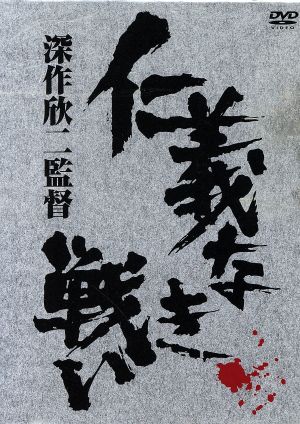 DVD
VIDEO
仁義な
き
戦い
深作欣二監督